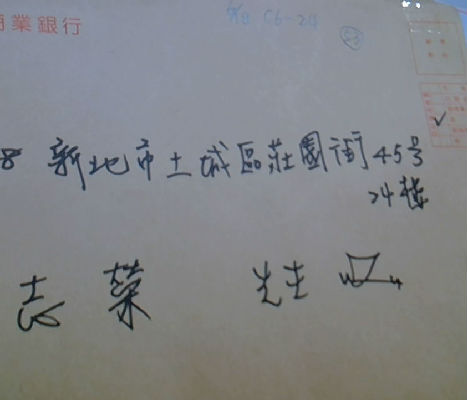 商業銀行
C6-24
8 新北市土城區莊園街45号
24樓
志榮 先生